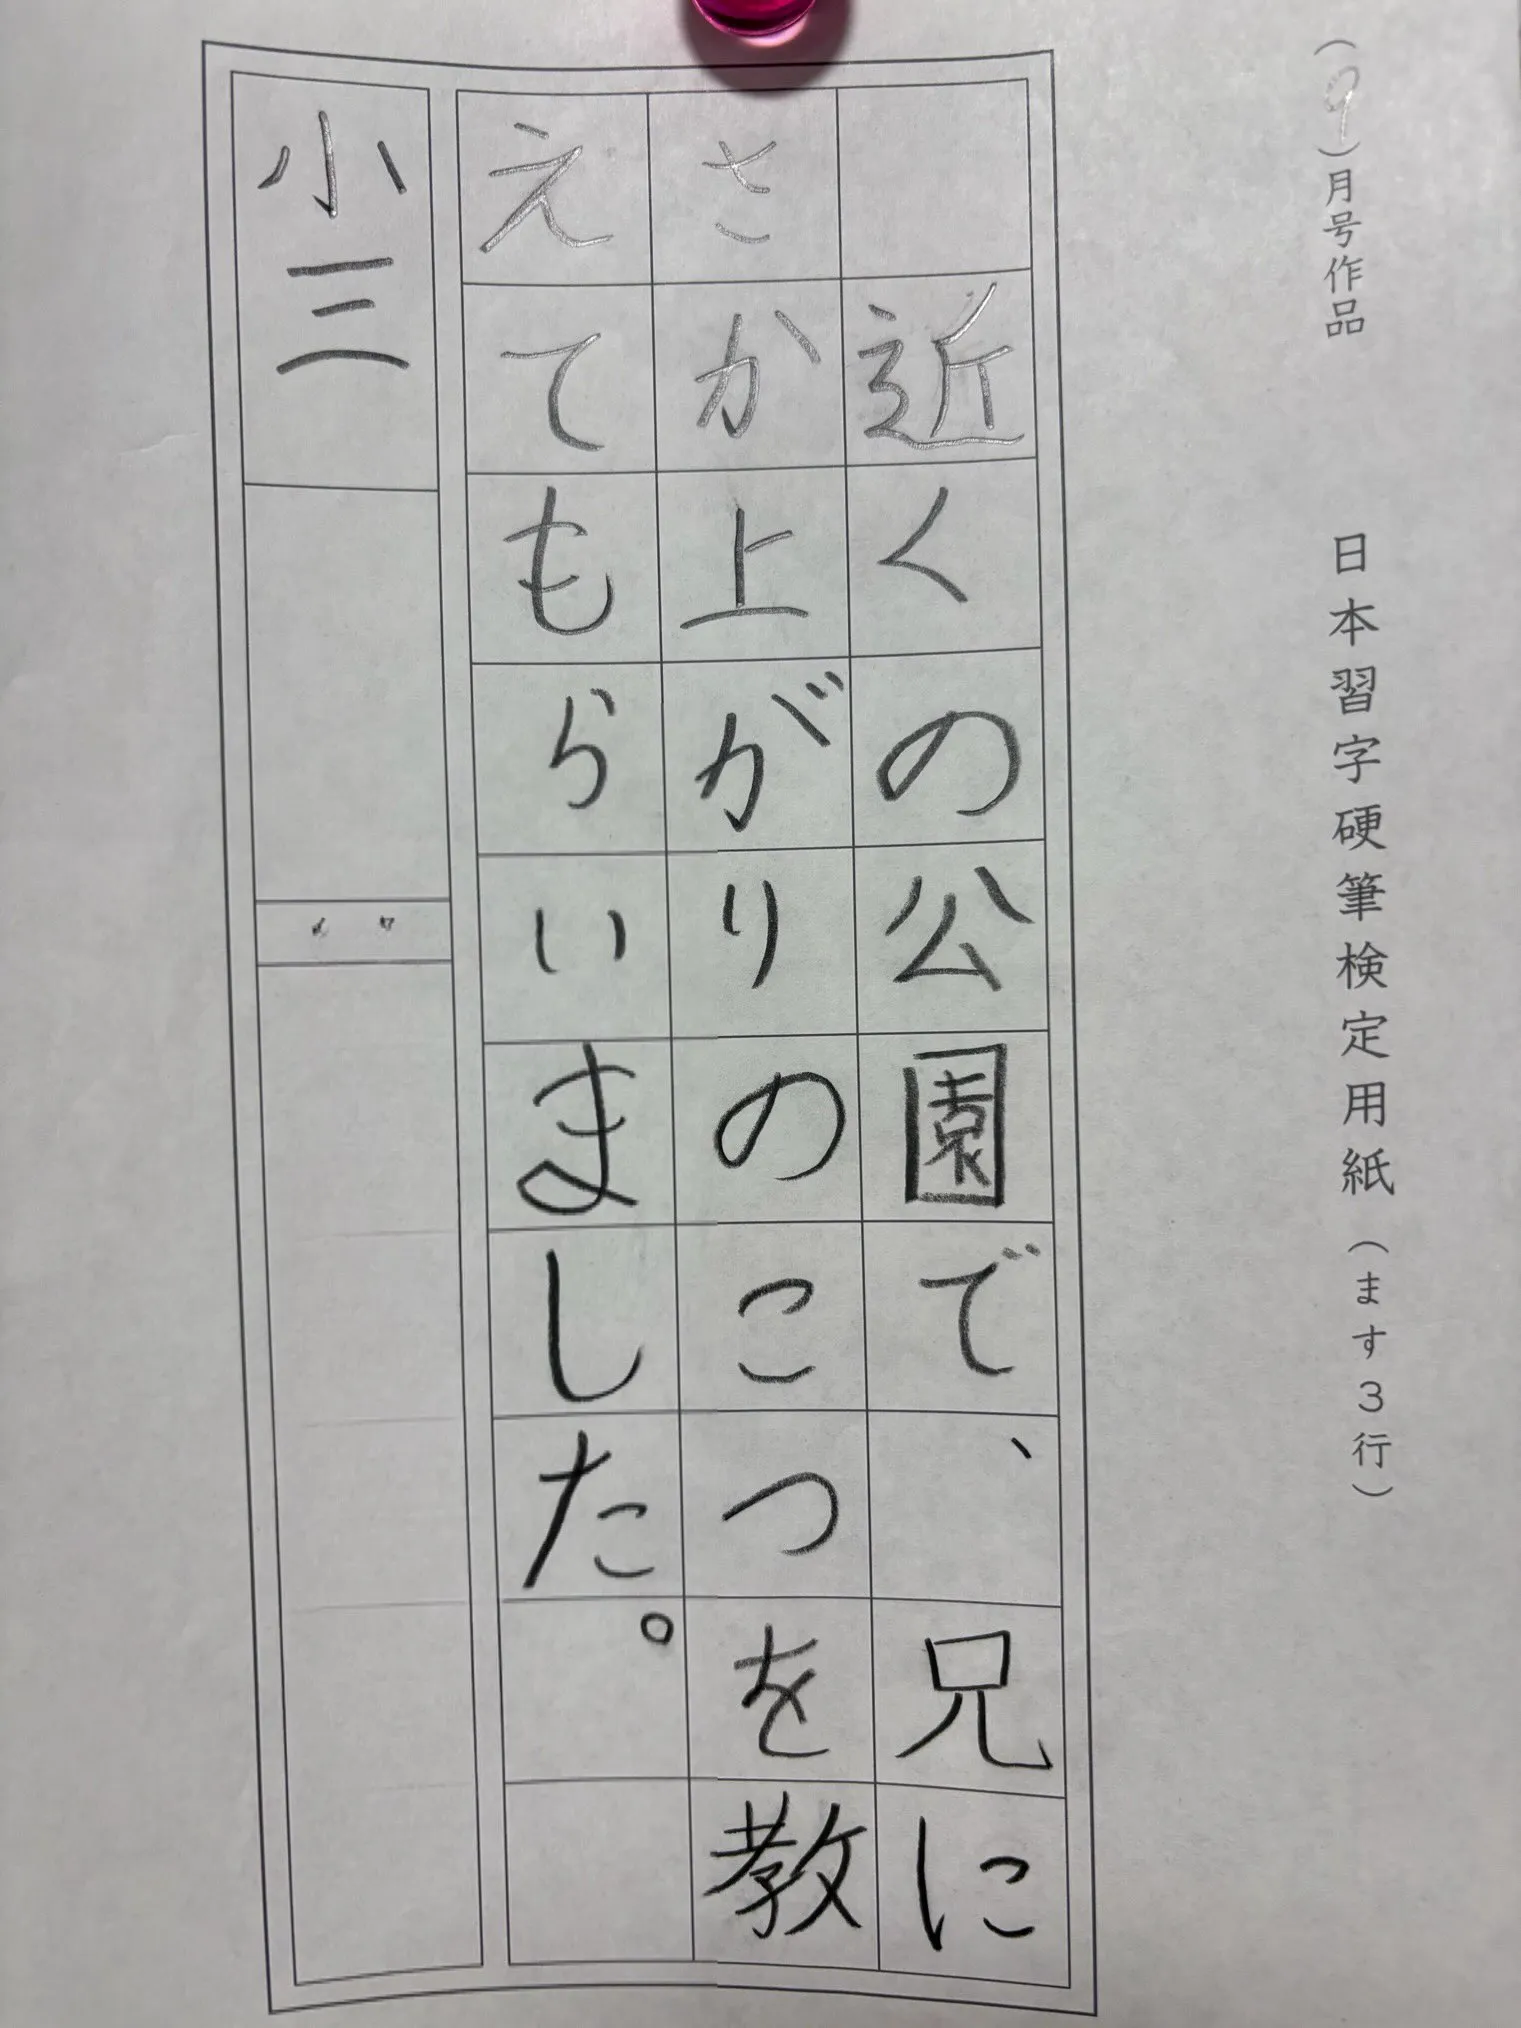 （９）月号作品　日本習字硬筆検定用紙（ます３行）
近くの公園で、兄に
さか上がりのこつを教
えてもらいました。
小三